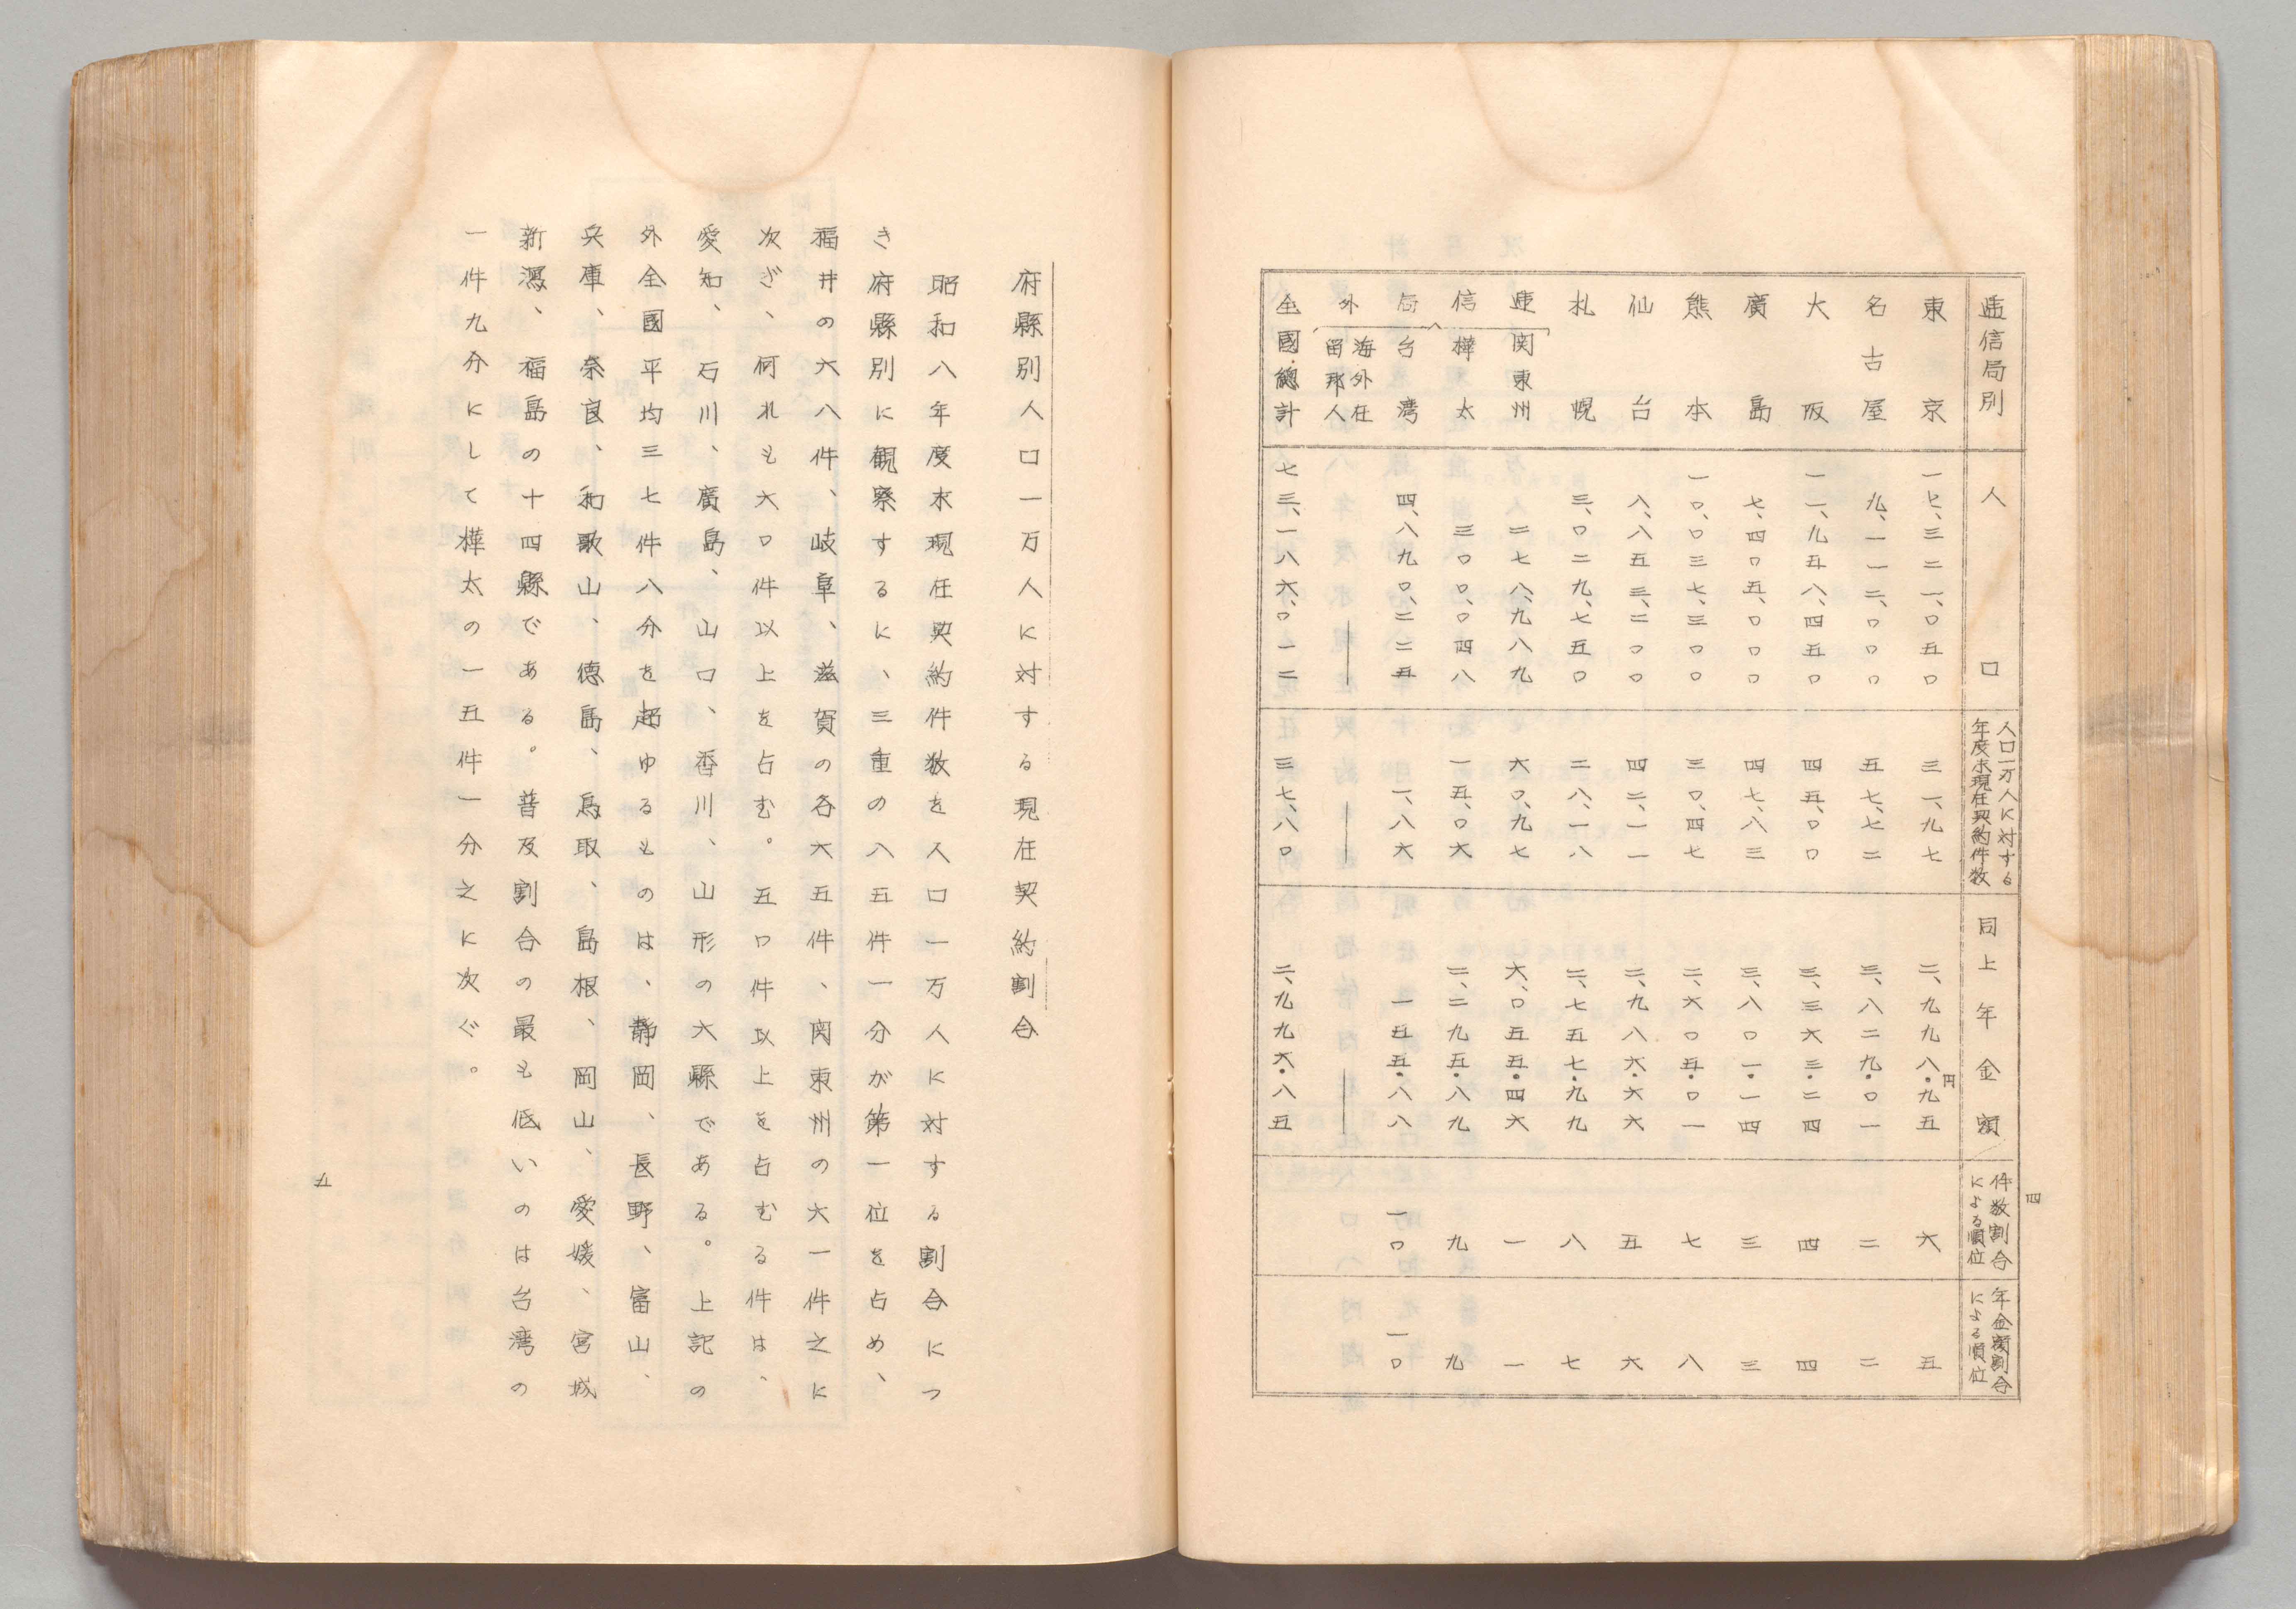 四
逓信局別　人口　人口一万人に対する年度末現在契約件数　同上年金額　件数割合による順位　年金額割合による順位
東京　一七、三二一、〇五〇　三一、九七　二、九九八・九五円　六　五
名古屋　九、一一二、〇〇〇　五七、七二　三、八二九・〇一　二　二
大阪　一一、九五八、四五〇　四五、〇〇　三、三六三・二四　四　四
廣島　七、四〇五、〇〇〇　四七、八三　三、八〇一・一四　三　三
熊本　一〇、〇三七、三〇〇　三〇、四七　二、六〇五・〇一　七　八
仙台　八、八五三、二〇〇　四二、一一　二、九八六・六六　五　六
札幌　三、〇二九、七五〇　二八、一八　二、七五七・九九　八　七
逓信局外
関東州　二七八、九八九　六〇、九七　六、〇五五・四六　一　一
樺太　三〇〇、〇四八　一五、〇六　二、二九五・八九　九　九
台湾　四、八九〇、二二五　一、八六　一五五・八八　一〇　一〇
海外在留邦人　―　―　―
全國総計　七三、一八六、〇一二　三七、八〇　二、九九六・八五
府縣別人口一万人に対する現在契約割合
昭和八年度末現在契約件数を人口一万人に対する割合につ
き府縣別に観察するに、三重の八五件一分が第一位を占め、
福井の六八件、岐阜、滋賀の各六五件、関東州の六一件之に
次ぎ、何れも六〇件以上を占む。五〇件以上を占むる件は、
愛知、石川、廣島、山口、香川、山形の六縣である。上記の
外全國平均三七件八分を超ゆるものは、静岡、長野、富山、
兵庫、奈良、和歌山、徳島、鳥取、島根、岡山、愛媛、宮城
新潟、福島の十四縣である。普及割合の最も低いのは台湾の
一件九分にして樺太の一五件一分之に次ぐ。
五